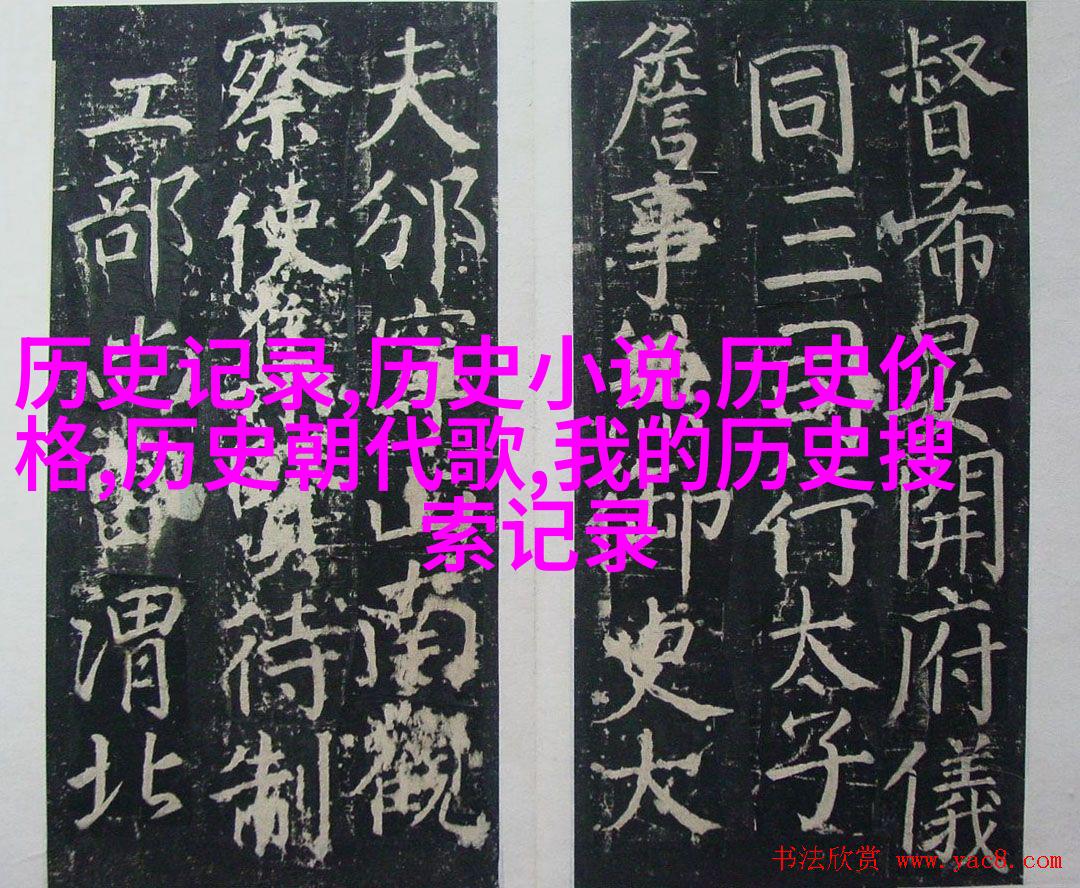 督希晏開府儀
同三司行太子
詹事兼御史大
夫邠寧山南觀
察使待制
工部尚書渭北
历史记录,历史小说,历史价
格,历史朝代歌,我的历史搜
索记录
书法欣赏 www.yac8.com